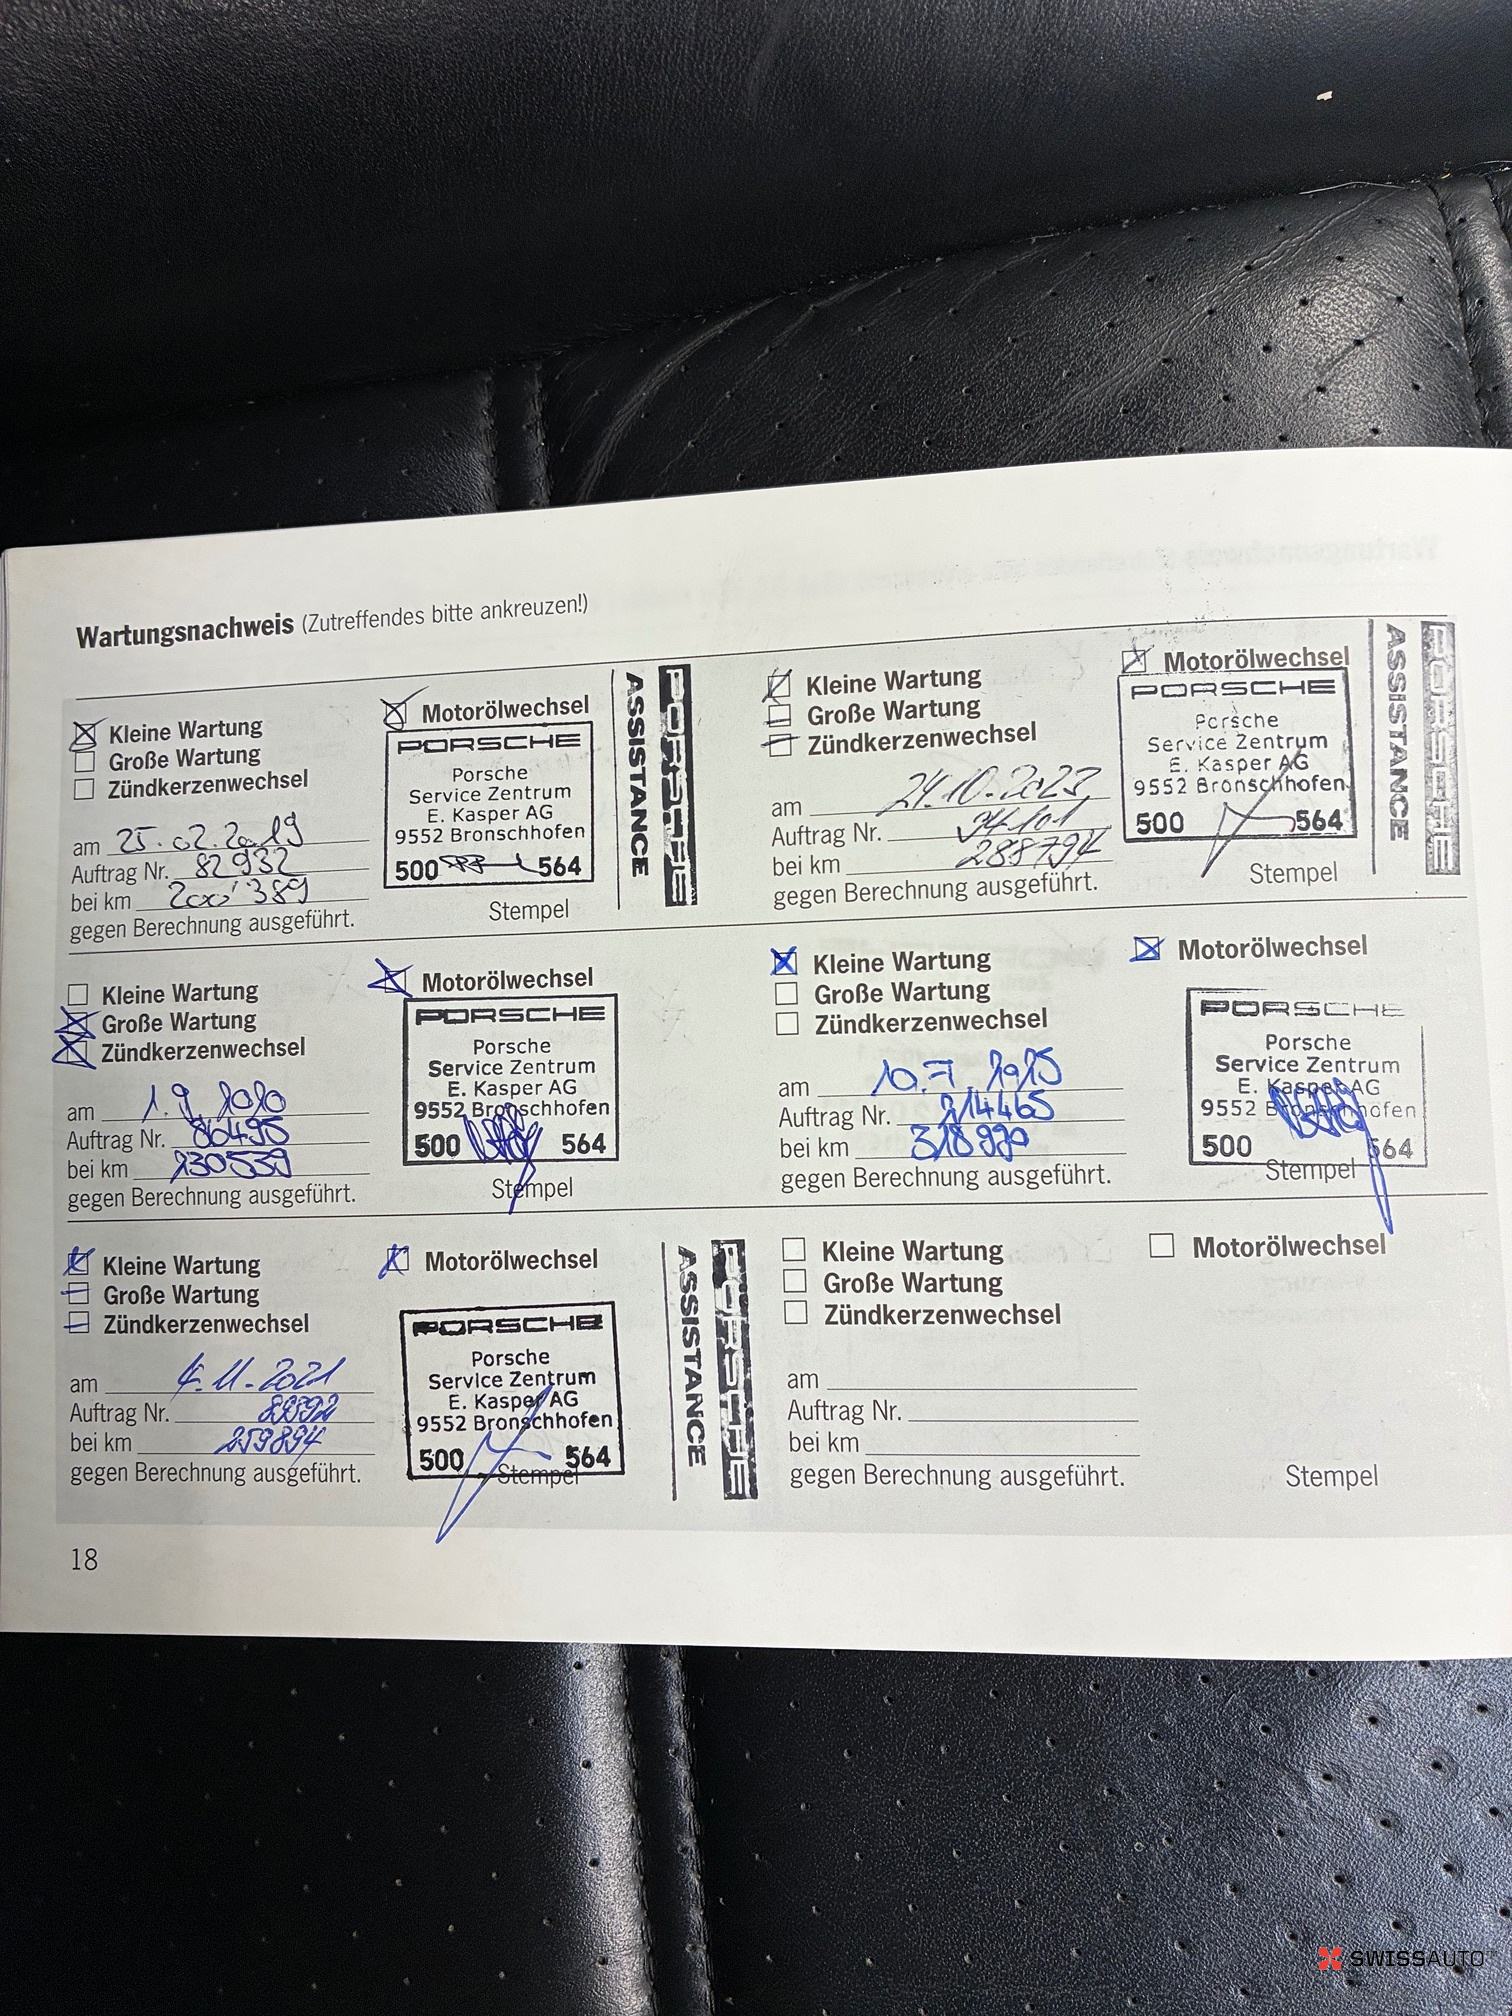 Wartungsnachweis (Zutreffendes bitte ankreuzen!)
Kleine Wartung
Große Wartung
Zündkerzenwechsel
Motorölwechsel
am 25.02.2019
Auftrag Nr. 82932
bei km 200'389
gegen Berechnung ausgeführt.
PORSCHE
Porsche
Service Zentrum
E. Kasper AG
9552 Bronschhofen
500 564
Stempel
PORSCHE
ASSISTANCE
Kleine Wartung
Große Wartung
Zündkerzenwechsel
Motorölwechsel
am 1.9.2020
Auftrag Nr. 86495
bei km 230539
gegen Berechnung ausgeführt.
PORSCHE
Porsche
Service Zentrum
E. Kasper AG
9552 Bronschhofen
500 564
Stempel
Kleine Wartung
Große Wartung
Zündkerzenwechsel
Motorölwechsel
am 4.11.2021
Auftrag Nr.
bei km 259894
gegen Berechnung ausgeführt.
PORSCHE
Porsche
Service Zentrum
E. Kasper AG
9552 Bronschhofen
500 564
Stempel
PORSCHE
ASSISTANCE
Kleine Wartung
Große Wartung
Zündkerzenwechsel
Motorölwechsel
am 24.10.2023
Auftrag Nr.
bei km 288794
gegen Berechnung ausgeführt.
PORSCHE
Porsche
Service Zentrum
E. Kasper AG
9552 Bronschhofen
500 564
Stempel
PORSCHE
ASSISTANCE
Kleine Wartung
Große Wartung
Zündkerzenwechsel
Motorölwechsel
am 10.7.2025
Auftrag Nr. 214465
bei km 318990
gegen Berechnung ausgeführt.
PORSCHE
Porsche
Service Zentrum
E. Kasper AG
9552 Bronschhofen
500 564
Stempel
Kleine Wartung
Große Wartung
Zündkerzenwechsel
Motorölwechsel
am
Auftrag Nr.
bei km
gegen Berechnung ausgeführt.
Stempel
18
SWISSAUTO